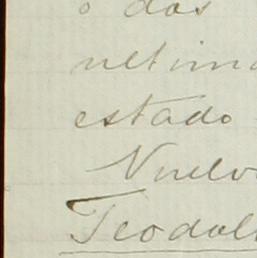 o dos
ultima
estado
Nuelv
Teodol